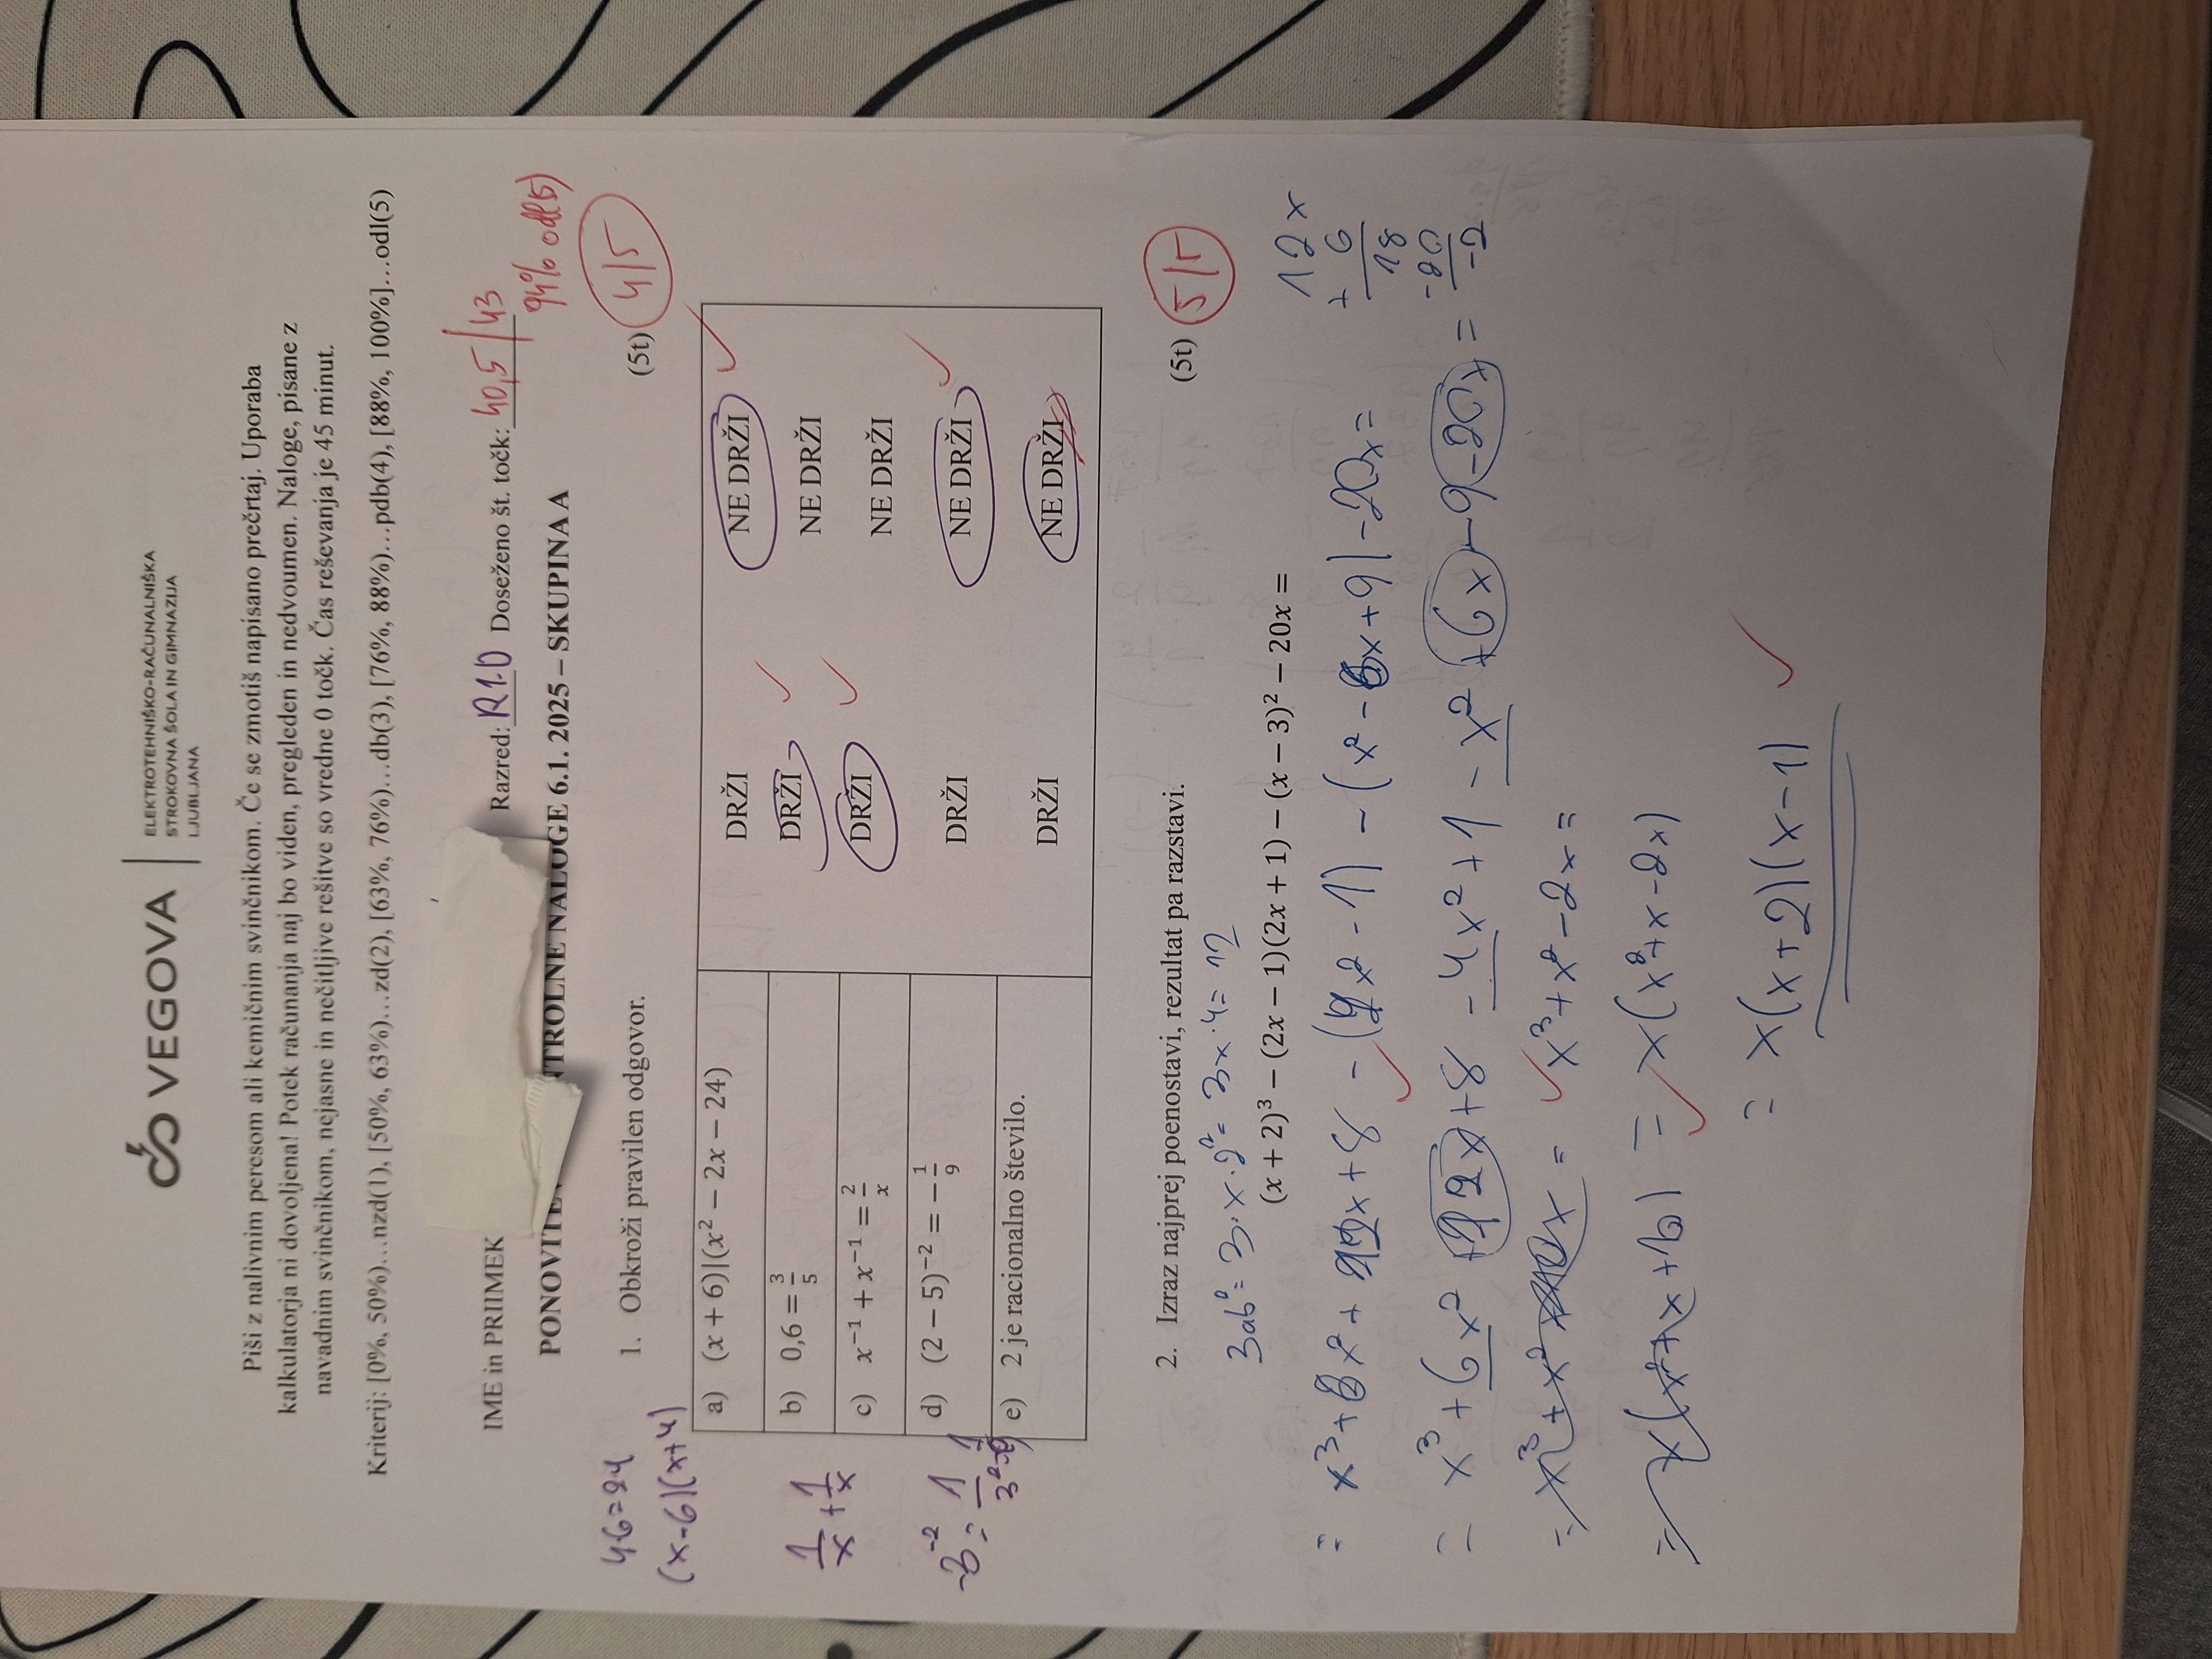 VEGOVA
ELEKTROTEHNIŠKO-RAČUNALNIŠKA
STROKOVNA ŠOLA IN GIMNAZIJA
LJUBLJANA
Piši z nalivnim peresom ali kemičnim svinčnikom. Če se zmotiš napisano prečrtaj. Uporaba
kalkulatorja ni dovoljena! Potek računanja naj bo viden, pregleden in nedvoumen. Naloge, pisane z
navadnim svinčnikom, nejasne in nečitljive rešitve so vredne 0 točk. Čas reševanja je 45 minut.
Kriterij: [0%, 50%)…nzd(1), [50%, 63%)…zd(2), [63%, 76%)…db(3), [76%, 88%)…pdb(4), [88%, 100%]…odl(5)
IME in PRIIMEK Razred: R1.D Doseženo št. točk: 40,5/43
94% odl(5)
PONOVITE NTROLNE NALOGE 6.1. 2025 – SKUPINA A
4·6=24
1. Obkroži pravilen odgovor. (5t) 4/5
(x-6)(x+4)
a) (x + 6)|(x² − 2x − 24) DRŽI NE DRŽI
b) 0,6 = 3/5 DRŽI NE DRŽI
1/x + 1/x
c) x⁻¹ + x⁻¹ = 2/x DRŽI NE DRŽI
d) (2 − 5)⁻² = −1/9 DRŽI NE DRŽI
-3⁻² = 1/3² = 1/9
e) 2 je racionalno število. DRŽI NE DRŽI
2. Izraz najprej poenostavi, rezultat pa razstavi. (5t) 5/5
3ab² = 3·x·2² = 3x·4 = 12
(x + 2)³ − (2x − 1)(2x + 1) − (x − 3)² − 20x =
= x³ + 6x² + 12x + 8 - (4x² - 1) - (x² - 6x + 9) - 20x =
12x
+ 6
18
-20
-2
= x³ + 6x² + 12x + 8 - 4x² + 1 - x² + 6x - 9 - 20x =
= x³ + x² x = x³ + x² - 2x =
= x(x² + x + 6) = x(x² + x - 2x)
= x(x+2)(x-1)